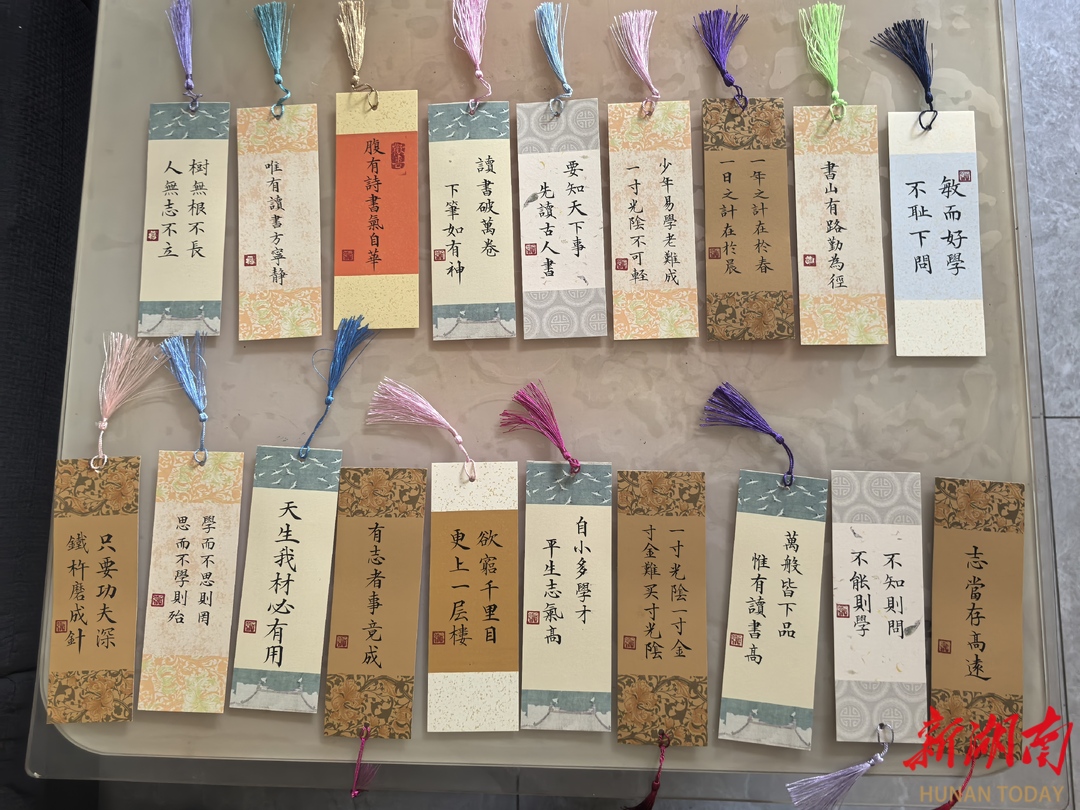 树無根不長
人無志不立
唯有讀書方寧静
腹有詩書氣自華
讀書破萬卷
下筆如有神
要知天下事
先讀古人書
少年易學老難成
一寸光陰不可輕
一年之計在於春
一日之計在於晨
書山有路勤為徑
敏而好學
不耻下問
只要功夫深
鐵杵磨成針
學而不思則罔
思而不學則殆
天生我材必有用
有志者事竟成
欲窮千里目
更上一层樓
自小多學才
平生志氣高
一寸光陰一寸金
寸金難买寸光陰
萬般皆下品
惟有讀書高
不知則問
不能則學
志當存高遠
新湖南
HUNAN TODAY